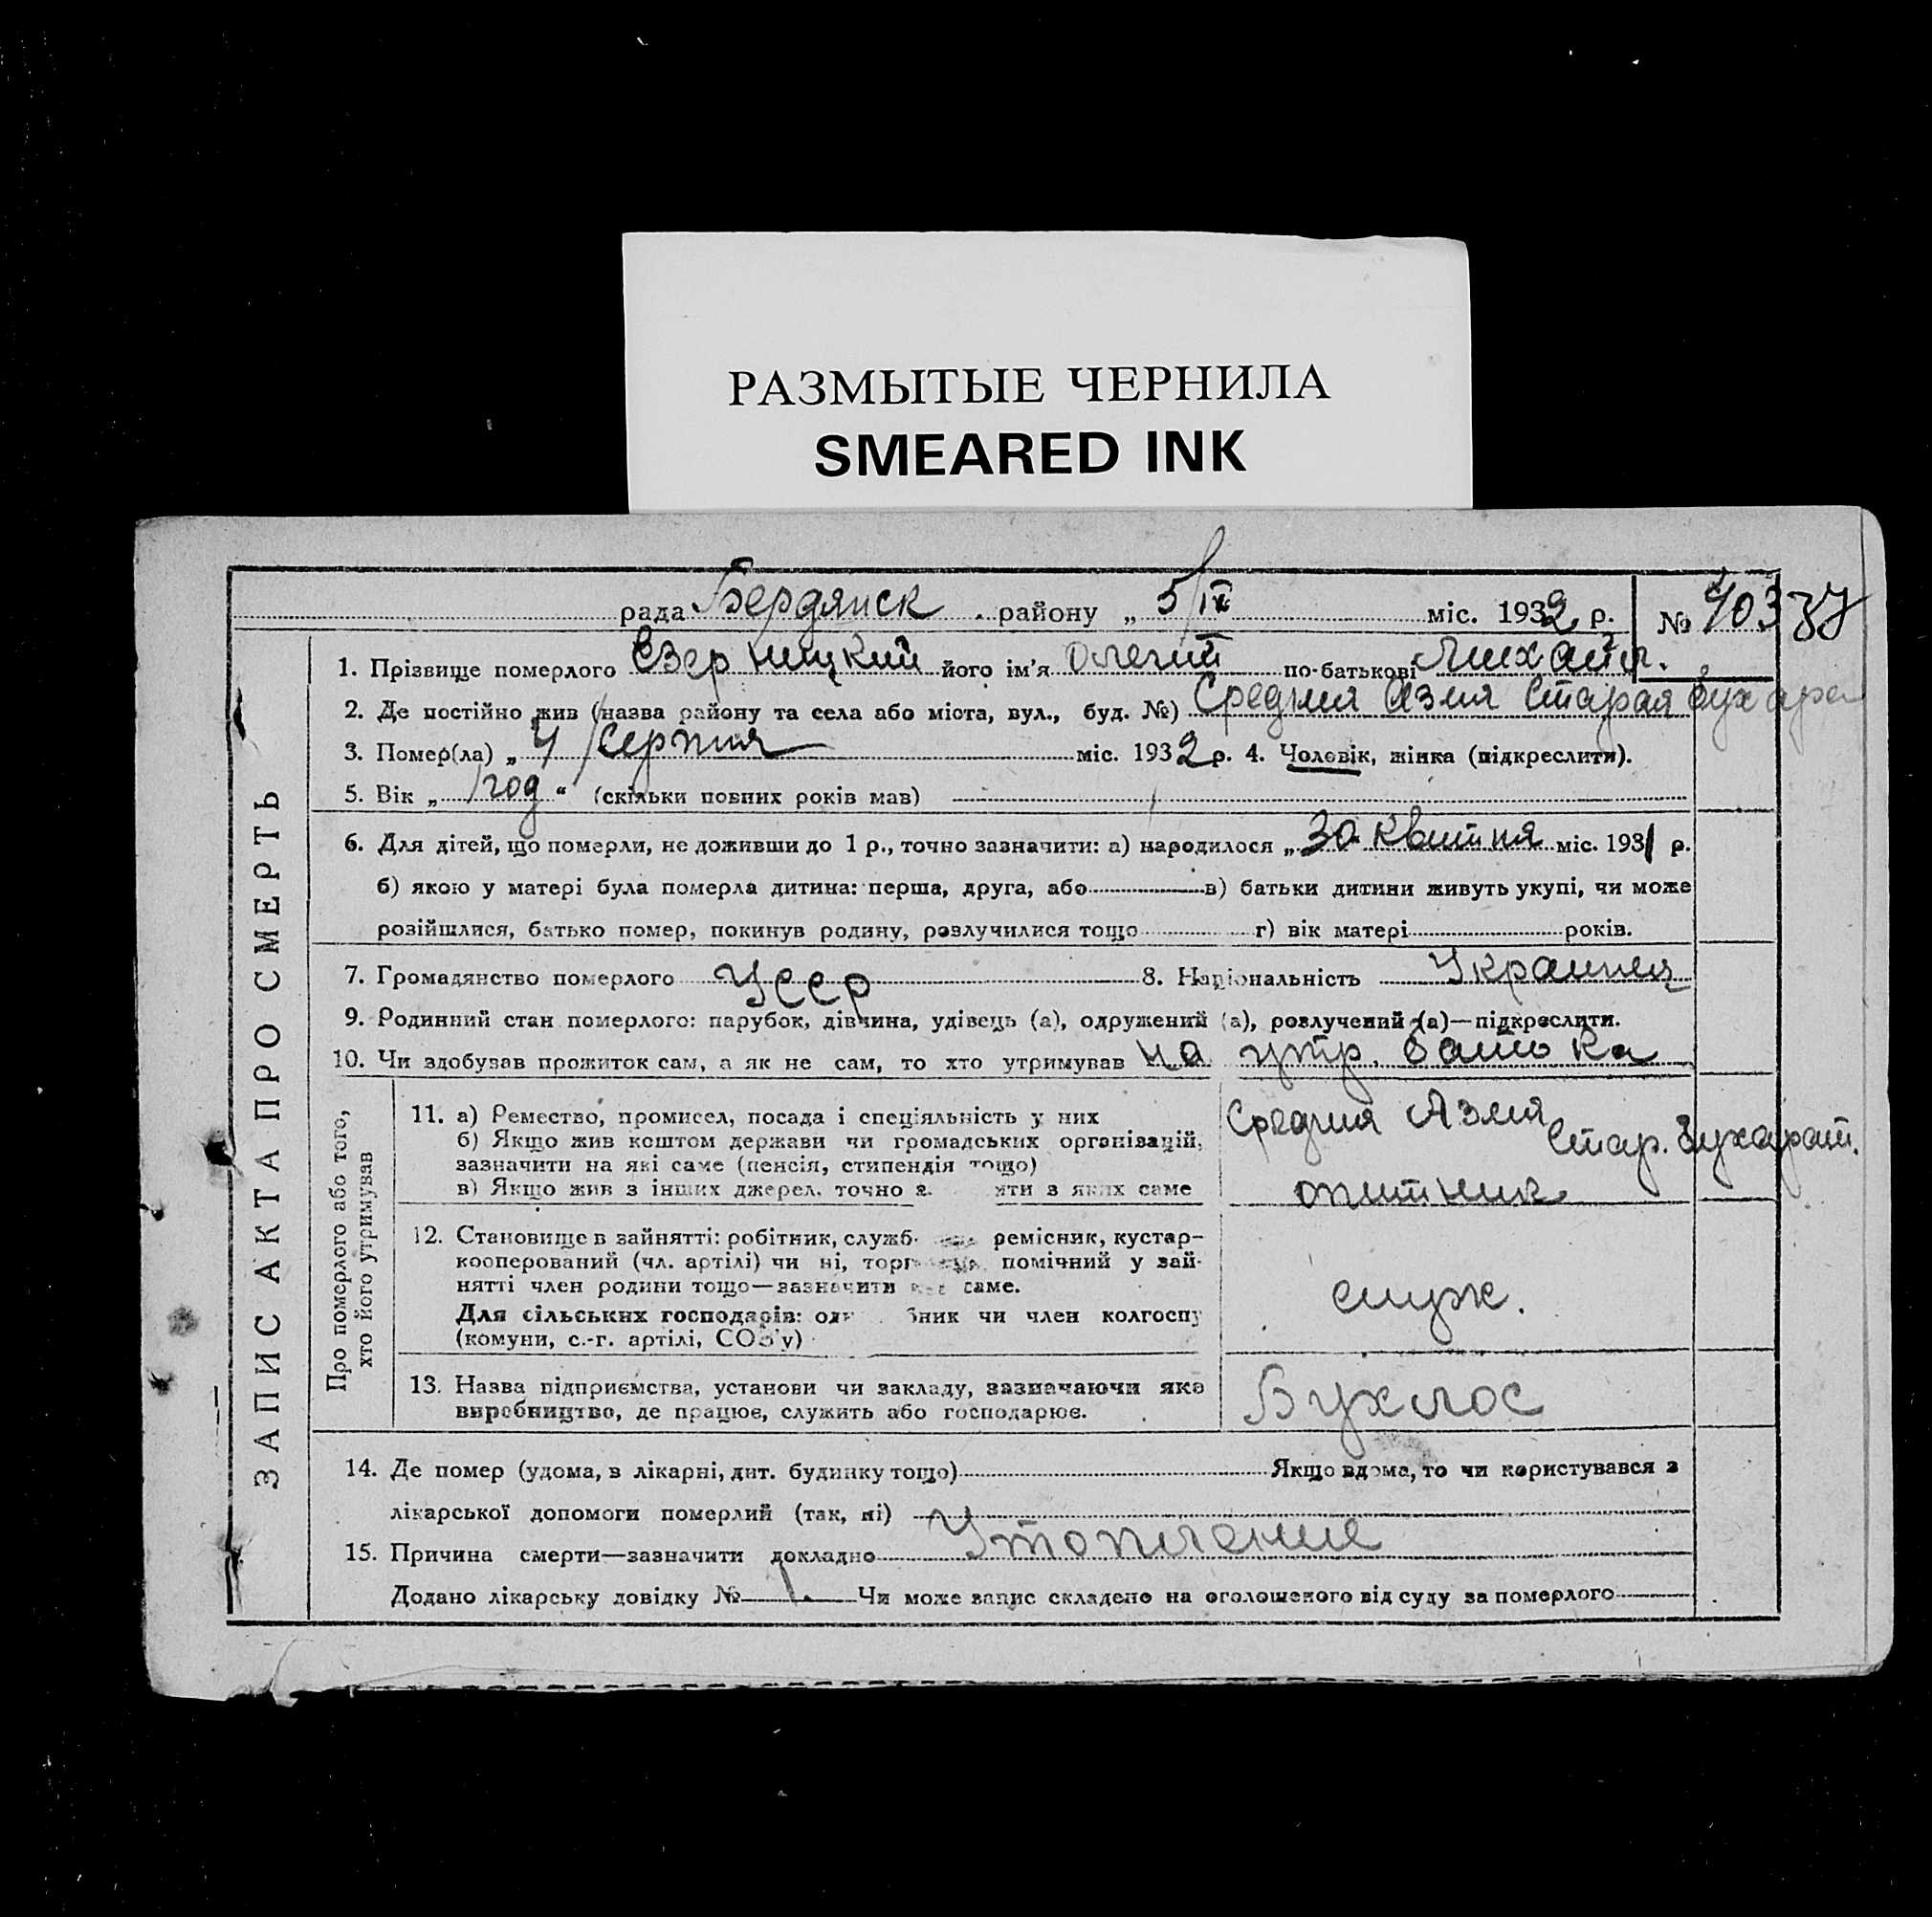 РАЗМЫТЫЕ ЧЕРНИЛА
SMEARED INK
рада Бердянск . району „ 5/IX міс. 1932 р. № 403
ЗАПИС АКТА ПРО СМЕРТЬ
1. Прізвище померлого Езерницкий його ім'я Олегий по-батькові Михайл.
2. Де постійно жив (назва району та села або міста, вул., буд. №) Средния Азия Старая Бухара
3. Помер(ла) „ 4 Серпня міс. 1932 р. 4. Чоловік, жінка (підкреслити).
5. Вік „ 1 год “ (скільки повних років мав)
6. Для дітей, що померли, не доживши до 1 р., точно зазначити: а) народилося „ 30 квитня міс. 1931 р.
б) якою у матері була померла дитина: перша, друга, або в) батьки дитини живуть укупі, чи може
розійшлися, батько помер, покинув родину, розлучилися тощо г) вік матері років.
7. Громадянство померлого УССР 8. Національність Украинец
9. Родинний стан померлого: парубок, дівчина, удівець (а), одружений (а), розлучений (а)—підкреслити.
10. Чи здобував прожиток сам, а як не сам, то хто утримував на утр. батька
Про померлого або того,
хто його утримував
11. а) Ремество, промисел, посада і спеціяльність у них Средния Азия
б) Якщо жив коштом держави чи громадських організацій, Стар. Бухарат.
зазначити на які саме (пенсія, стипендія тощо)
в) Якщо жив з інших джерел, точно яти з яких саме опитник
12. Становище в зайнятті: робітник, служб ремісник, кустар-
кооперований (чл. артілі) чи ні, торг помічний у зай-
нятті член родини тощо—зазначити саме. служ.
Для сільських господарів: од ник чи член колгоспу
(комуни, с.-г. артілі, СОЗ'у)
13. Назва підприємства, установи чи закладу, зазначаючи яке Бухлос
виробництво, де працює, служить або господарює.
14. Де помер (удома, в лікарні, дит. будинку тощо) Якщо вдома, то чи користувався з
лікарської допомоги померлий (так, ні)
15. Причина смерти—зазначити докладно Утопление
Додано лікарську довідку № Чи може запис складено на оголошеного від суду за померлого